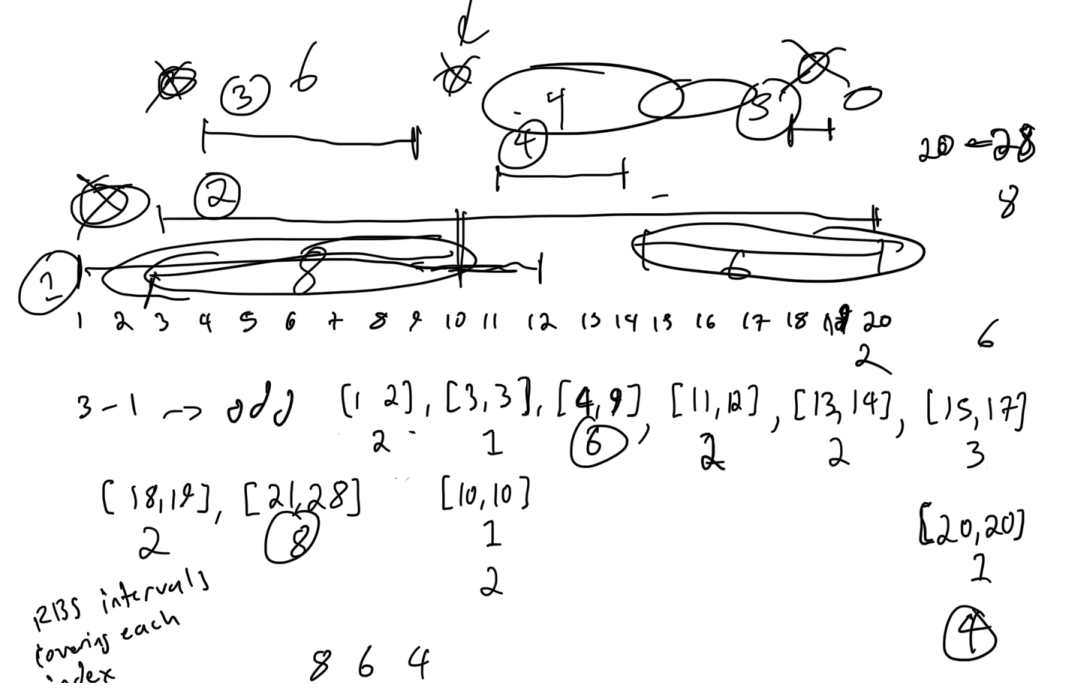 ③ 6
4
④
5
20 - 28
8
②
①
8
6
1 2 3 4 5 6 7 8 9 10 11 12 13 14 15 16 17 18 19 20
2
6
3-1 → odd [1 2], [3,3], [4,9], [11,12], [13,14], [15,17]
2 1 6 2 2 3
[18,19], [21,28] [10,10]
2 8 1
2
[20,20]
1
4
RBS intervals
covering each
index
8 6 4